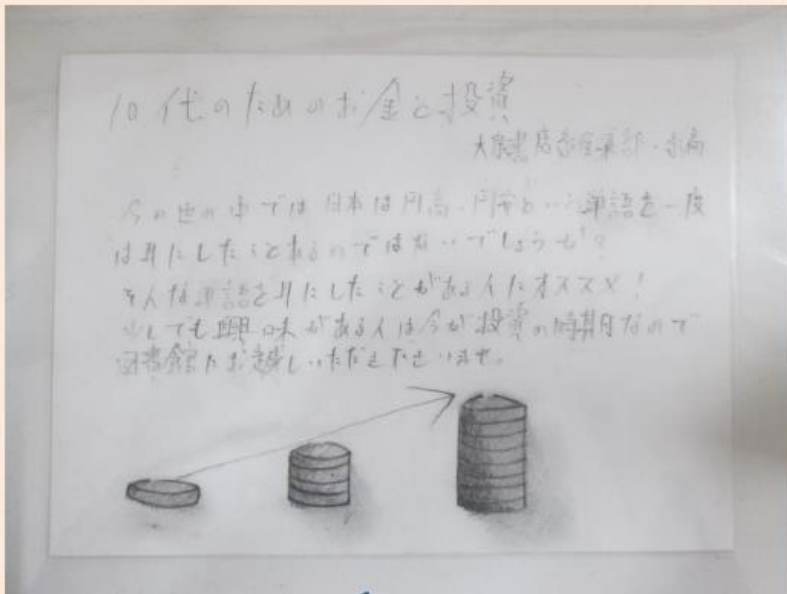 10代のためのお金と投資
大泉書店編集部・永高
今の世の中では日本は円高、円安という単語を一度
は耳にしたことあるのではないでしょうか?
そんな単語を耳にしたことがある人にオススメ!
少しでも興味がある人は今が投資の時期なので
図書館にお越しいただきたいませ。